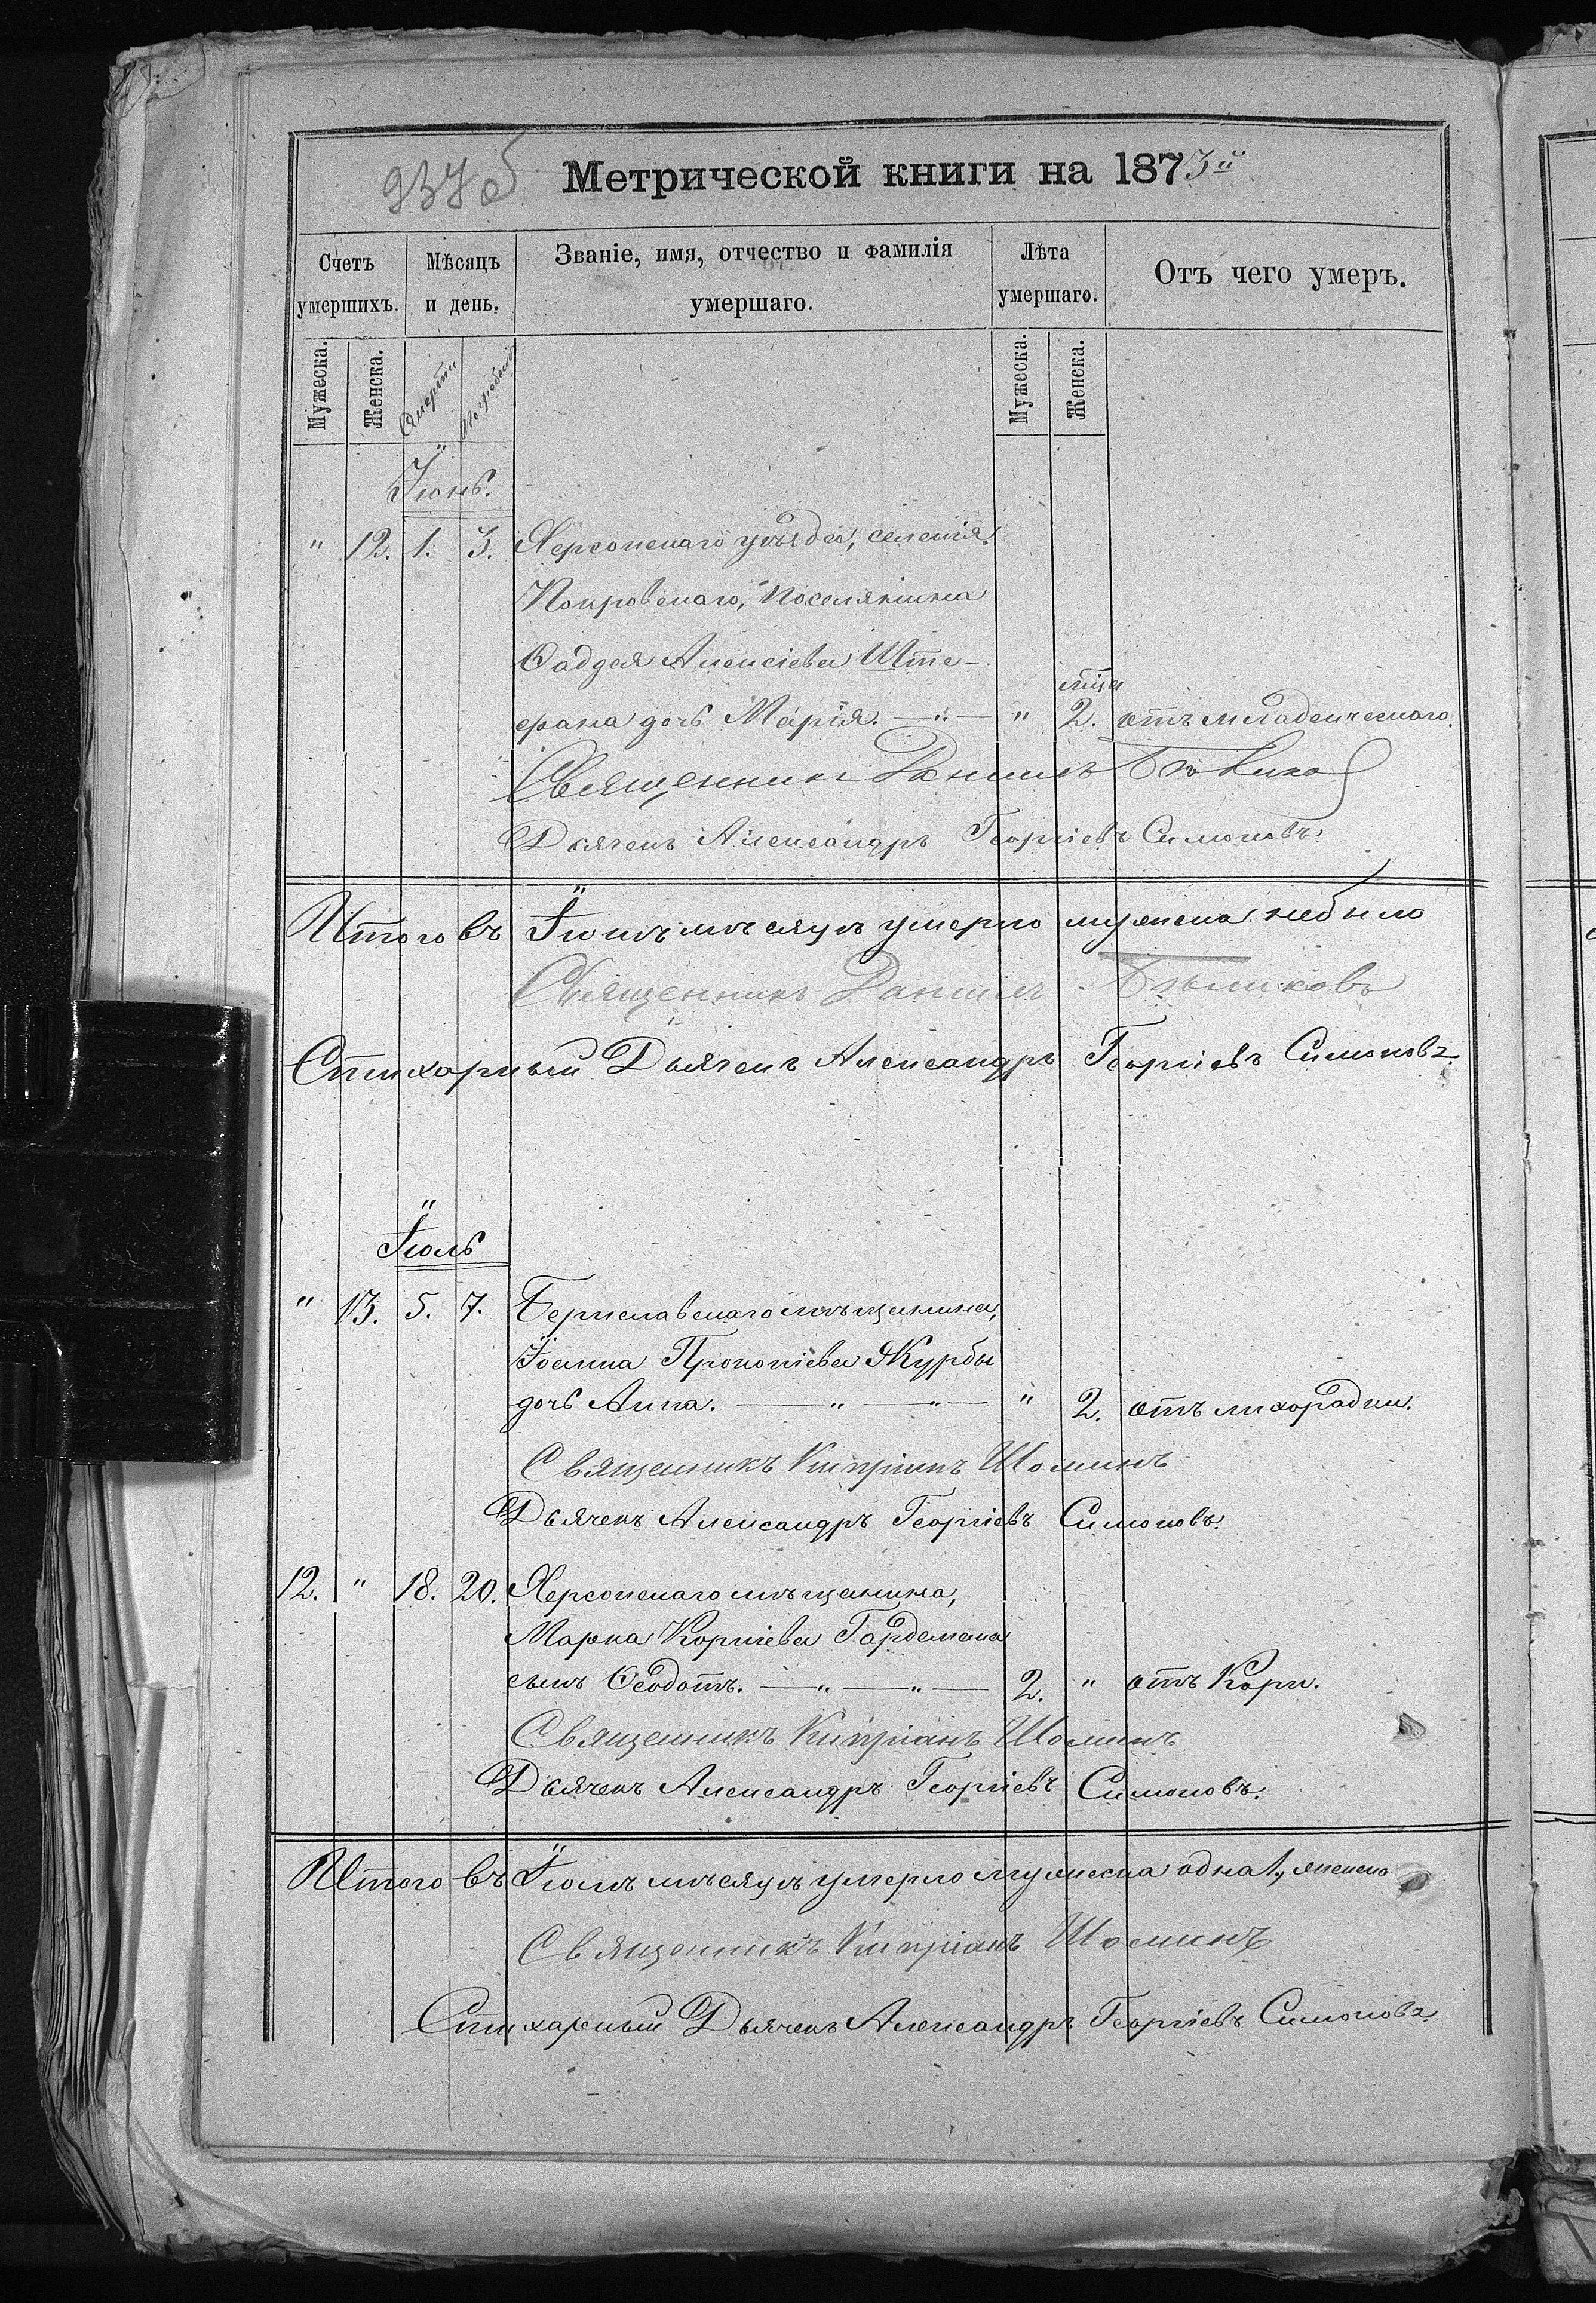 937 об
Метрической книги на 1873й
Счетъ умершихъ.
Мѣсяцъ и день.
Званіе, имя, отчество и фамилія умершаго.
Лѣта умершаго.
Отъ чего умеръ.
Мужеска.
Женска.
Смерти
Погребенія
Мужеска.
Женска.
Іюнь.
" 12. 1. 3. Херсонскаго уѣзда, селенія
Покровскаго, поселянина
Фадея АлексіеваШте-
мца
ерана дочь Марія. " 2. отъ младенческаго.
Священникъ Даніилъ
Дьячекъ Александръ Георгіевъ Симоновъ.
Итого въ Іюнѣ мѣсяцѣ умерло мужеска небыло
Священникъ Даніилъ
Стихарный Дьячекъ Александръ Георгіевъ Симоновъ.
Іюль
" 13. 5. 7. Бериславскаго мѣщанина,
Іоанна Прокопіева Журбы
дочь Анна. — " — " — " 2. отъ лихорадки.
Священникъ Кипріанъ Шоминъ
Дьячекъ Александръ Георгіевъ Симоновъ.
12. " 18. 20. Херсонскаго мѣщанина,
Марка Корніева Гардемана
сынъ Ѳеодотъ. — " — " — 2. " отъ Кори.
Священникъ Кипріанъ Шоминъ
Дьячекъ Александръ Георгіевъ Симоновъ.
Итого въ Іюлѣ мѣсяцѣ умерло мужеска одна 1, женска
Священникъ Кипріанъ Шоминъ
Стихарный Дьячекъ Александръ Георгіевъ Симоновъ.